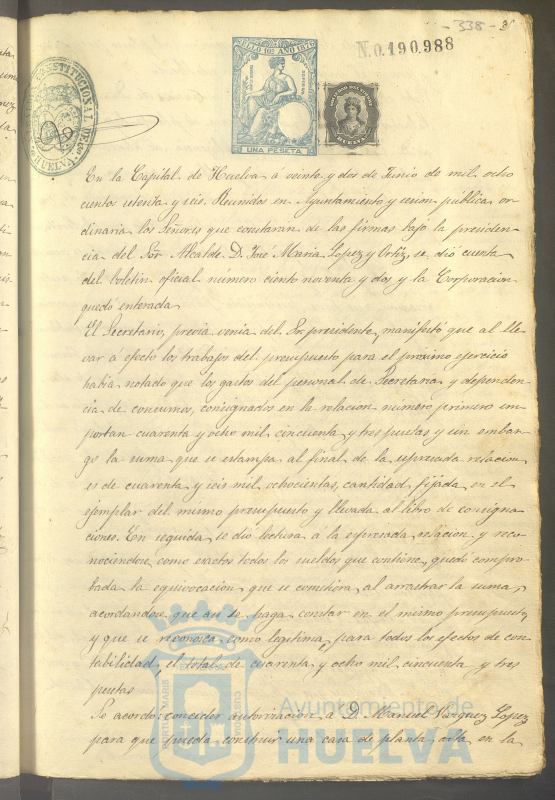 - 338 -
N.0.190.988
SELLO 10º AÑO 1876
UNA PESETA
HUELVA
En la Capital de Huelva a veinte y dos de Junio de mil ocho
cientos setenta y seis. Reunidos en Ayuntamiento y sesion publica or-
dinaria los Señores que constaran de las firmas bajo la presiden-
cia del Sor. Alcalde D. José Maria Lopez y Ortiz, se dió cuenta
del boletin oficial número ciento noventa y dos y la Corporacion
quedó enterada
El Secretario, previa venia del Sr. presidente, manifestó que al lle-
var a efecto los trabajos del presupuesto para el próximo ejercicio
habia notado que los gastos del personal de Secretaria y dependen-
cia de consumos, consignados en la relacion número primero im-
portan cuarenta y ocho mil cincuenta y tres pesetas y sin embar-
go la suma que se estampa al final de la espresada relacion
es de cuarenta y seis mil ochocientas, cantidad fijada en el
ejemplar del mismo presupuesto y llevada al libro de consigna-
ciones. En seguida se dió lectura á la espresada relacion y reco-
nociendose como exactos todos los sueldos que contiene, quedó compro-
bada la equivocacion que se cometiera al arrastrar la suma,
acordandose que asi se haga constar en el mismo presupuesto
y que se reconosca como legitima, para todos los efectos de con-
tabilidad, el total de cuarenta y ocho mil cincuenta y tres
pesetas
Se acordó conceder autorizacion a D. Manuel Vazquez Lopez
para que pueda construir una casa de planta alta en la
Ayuntamiento de
HUELVA